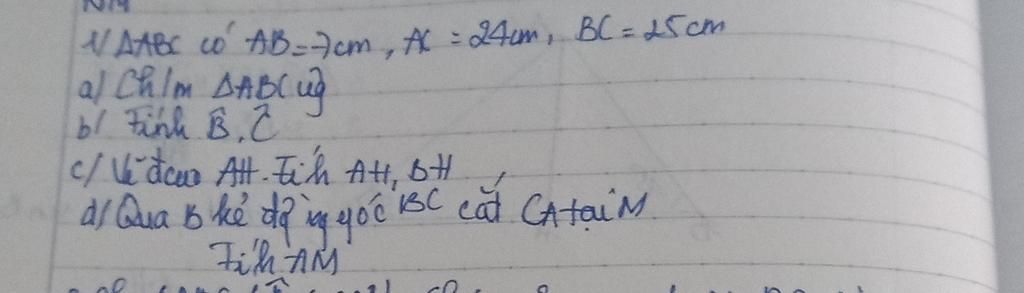 1/ ΔABC có AB = 7cm, AC = 24cm, BC = 25cm
a) Ch/m ΔABC vg
b/ Tính B̂, Ĉ
c/ Vẽ đcao AH. Tính AH, BH
d/ Qua B kẻ đg vg góc BC cắt CA tại M.
Tính AM